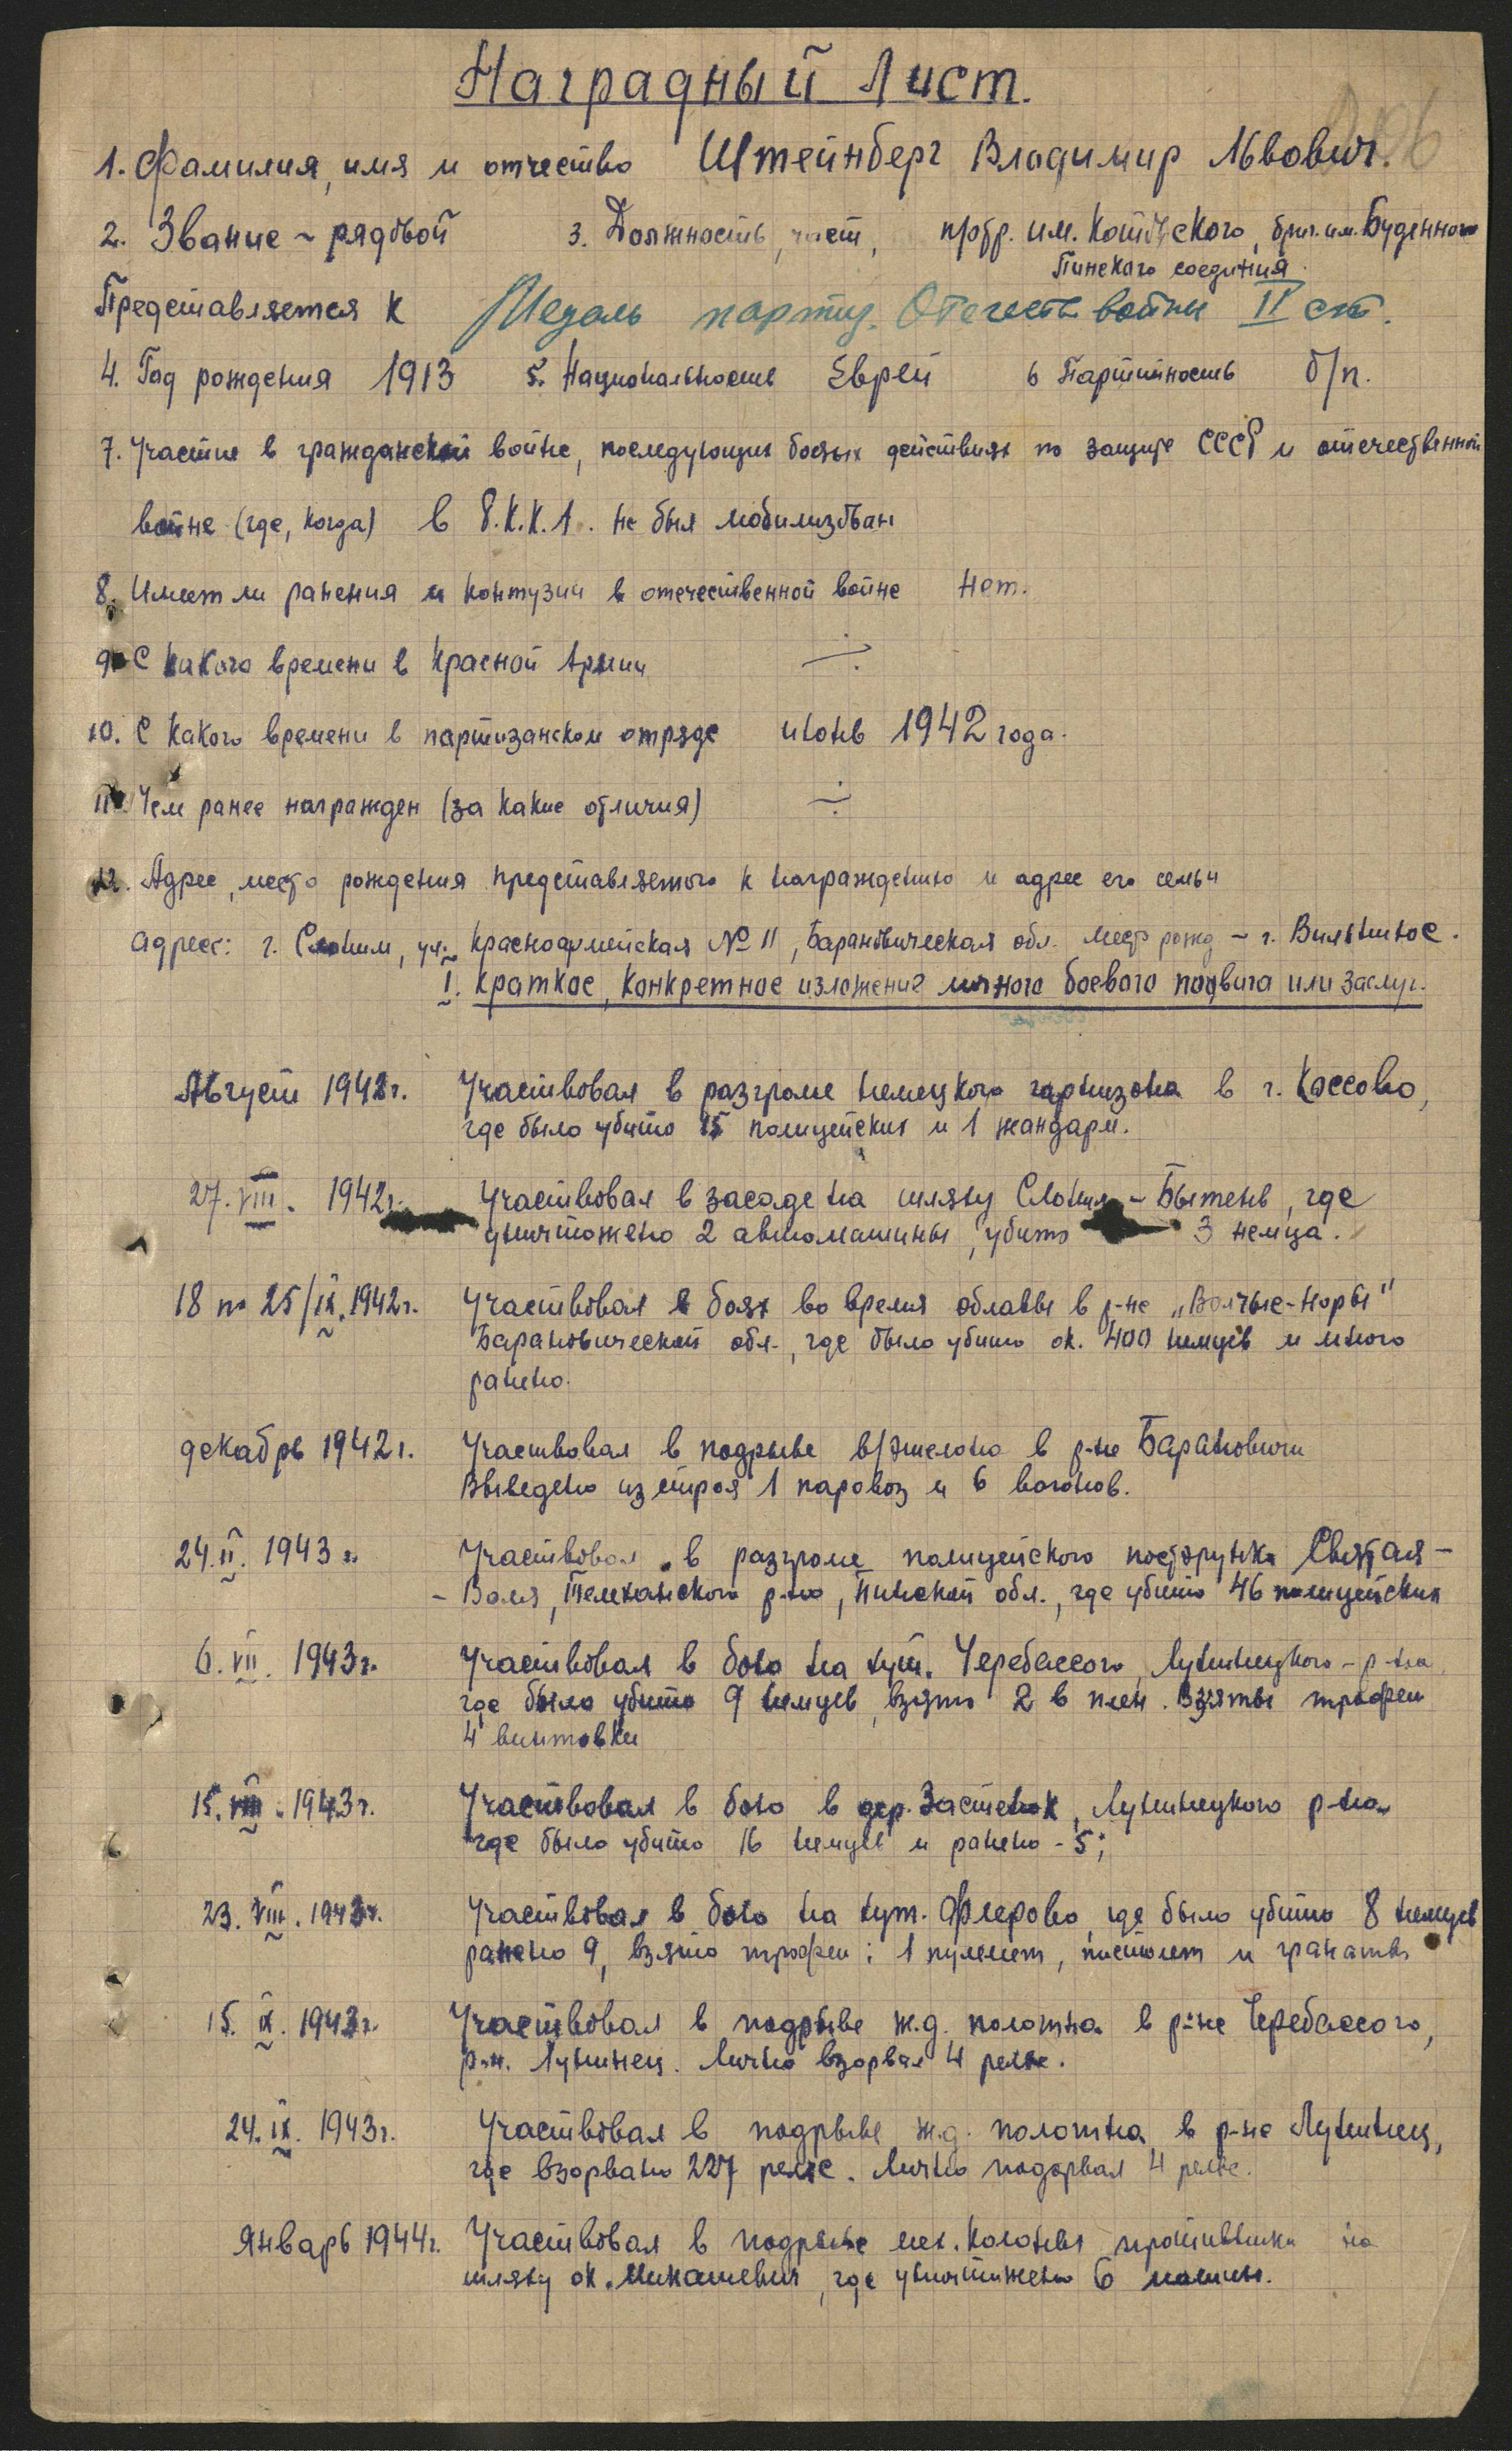 Наградный Лист.
1. Фамилия, имя и отчество Штейнберг Владимир Львович.
2. Звание - рядовой 3. Должность, част, п/отр. им. Котовского, бриг. им. Буденного
Пинского соединия
Представляется к Медаль партиз. Отечеств войны II ст.
4. Год рождения 1913 5. Национальность Еврей 6 Партийность б/п.
7. Участие в гражданской войне, последующих боевых действиях по защите СССР и отечественной
войне (где, когда) в Р.К.К.А. не был мобилизован
8. Имеет ли ранения и контузии в отечественной войне Нет.
9. С какого времени в Красной Армии ÷
10. С какого времени в партизанском отряде июнь 1942 года.
11. Чем ранее награжден (за какие отличия) ÷
12. Адрес, место рождения представляемого к награждению и адрес его семьи
адрес: г. Слоним, ул. Красноармейская № 11, Барановическая обл. Место рожд - г. Вильнюс.
I. Краткое, конкретное изложение личного боевого подвига или заслуг.
Август 1942г. Участвовал в разгроме немецкого гарнизона в г. Коссово,
где было убито 15 полицейских и 1 жандарм.
27.VIII. 1942г. Участвовал в засаде на шляху Слоним - Бытень, где
уничтожено 2 автомашины, убито 3 немца.
18 по 25/IX.1942г. Участвовал в боях во время облавы в р-не „Волчые-Норы"
Барановической обл., где было убито ок. 400 немцев и много
ранено.
декабрь 1942г. Участвовал в подрыве в/эшелона в р-не Барановичи
Выведено из строя 1 паровоз и 6 вагонов.
24.II. 1943г. Участвовал в разгроме полицейского постарунка Святая -
- Воля, Телеханского р-на, Пинской обл., где убито 46 полицейских
6.VII. 1943г. Участвовал в бою на хут. Черебасово, Лунинецкого - р-на
где было убито 9 немцев, взято 2 в плен. Взяты трофеи
4 винтовки
15.VIII.1943г. Участвовал в бою в дер. Застенок, Лунинецкого р-на
где было убито 16 немцев и ранено - 5;
23.VIII.1943г. Участвовал в бою на хут. Флерово, где было убито 8 немцев
ранено 9, взято трофеи: 1 пулемет, пистолет и гранаты
15.IX.1943г. Участвовал в подрыве ж.д. полотна в р-не Черебасово,
р-н. Лунинец. Лично взорвал 4 рельс.
24.IX. 1943г. Участвовал в подрыве ж.д. полотна в р-не Лунинец,
где взорвано 227 рельс. Лично подорвал 4 рельс.
Январь 1944г. Участвовал в подрыве мех. колонны противника на
шляху ок. Микашевич, где уничтожено 6 машин.